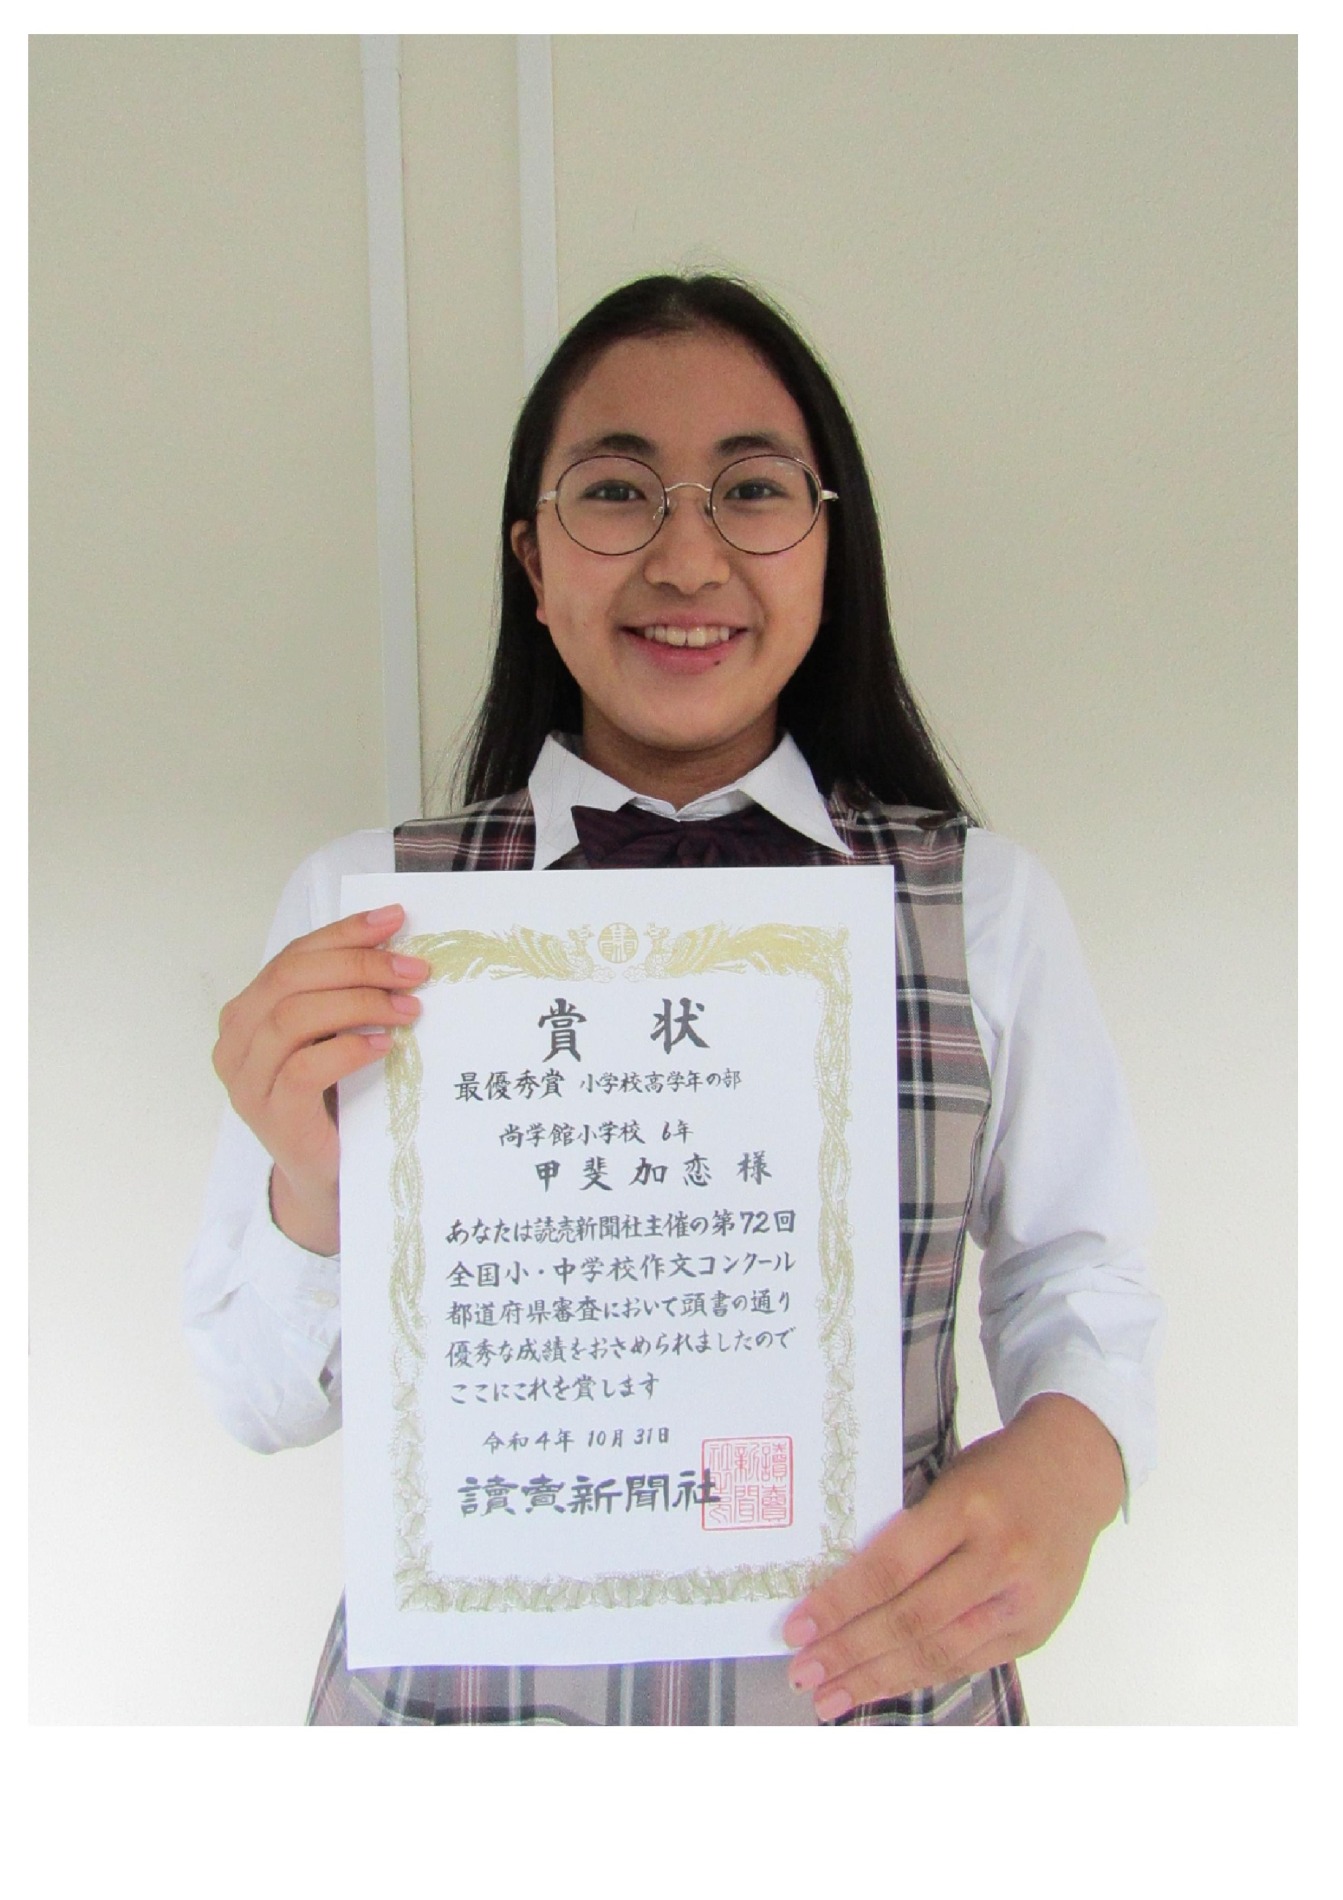 賞状
最優秀賞 小学校高学年の部
尚学館小学校 6年
甲斐加恋 様
あなたは読売新聞社主催の第72回
全国小・中学校作文コンクール
都道府県審査において頭書の通り
優秀な成績をおさめられましたので
ここにこれを賞します
令和4年10月31日
讀賣新聞社